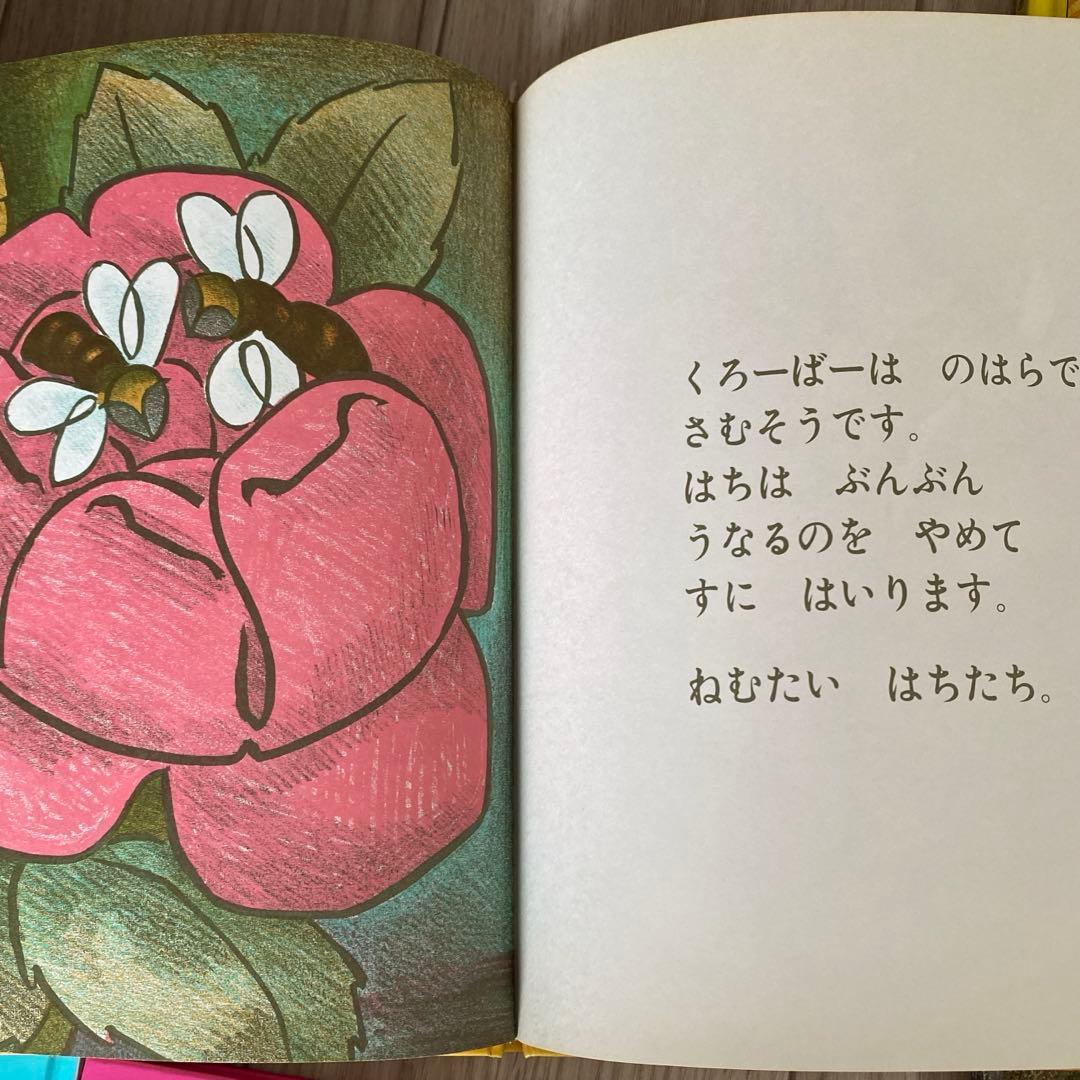 くろーばーは　のはらで
さむそうです。
はちは　ぶんぶん
うなるのを　やめて
すに　はいります。
ねむたい　はちたち。